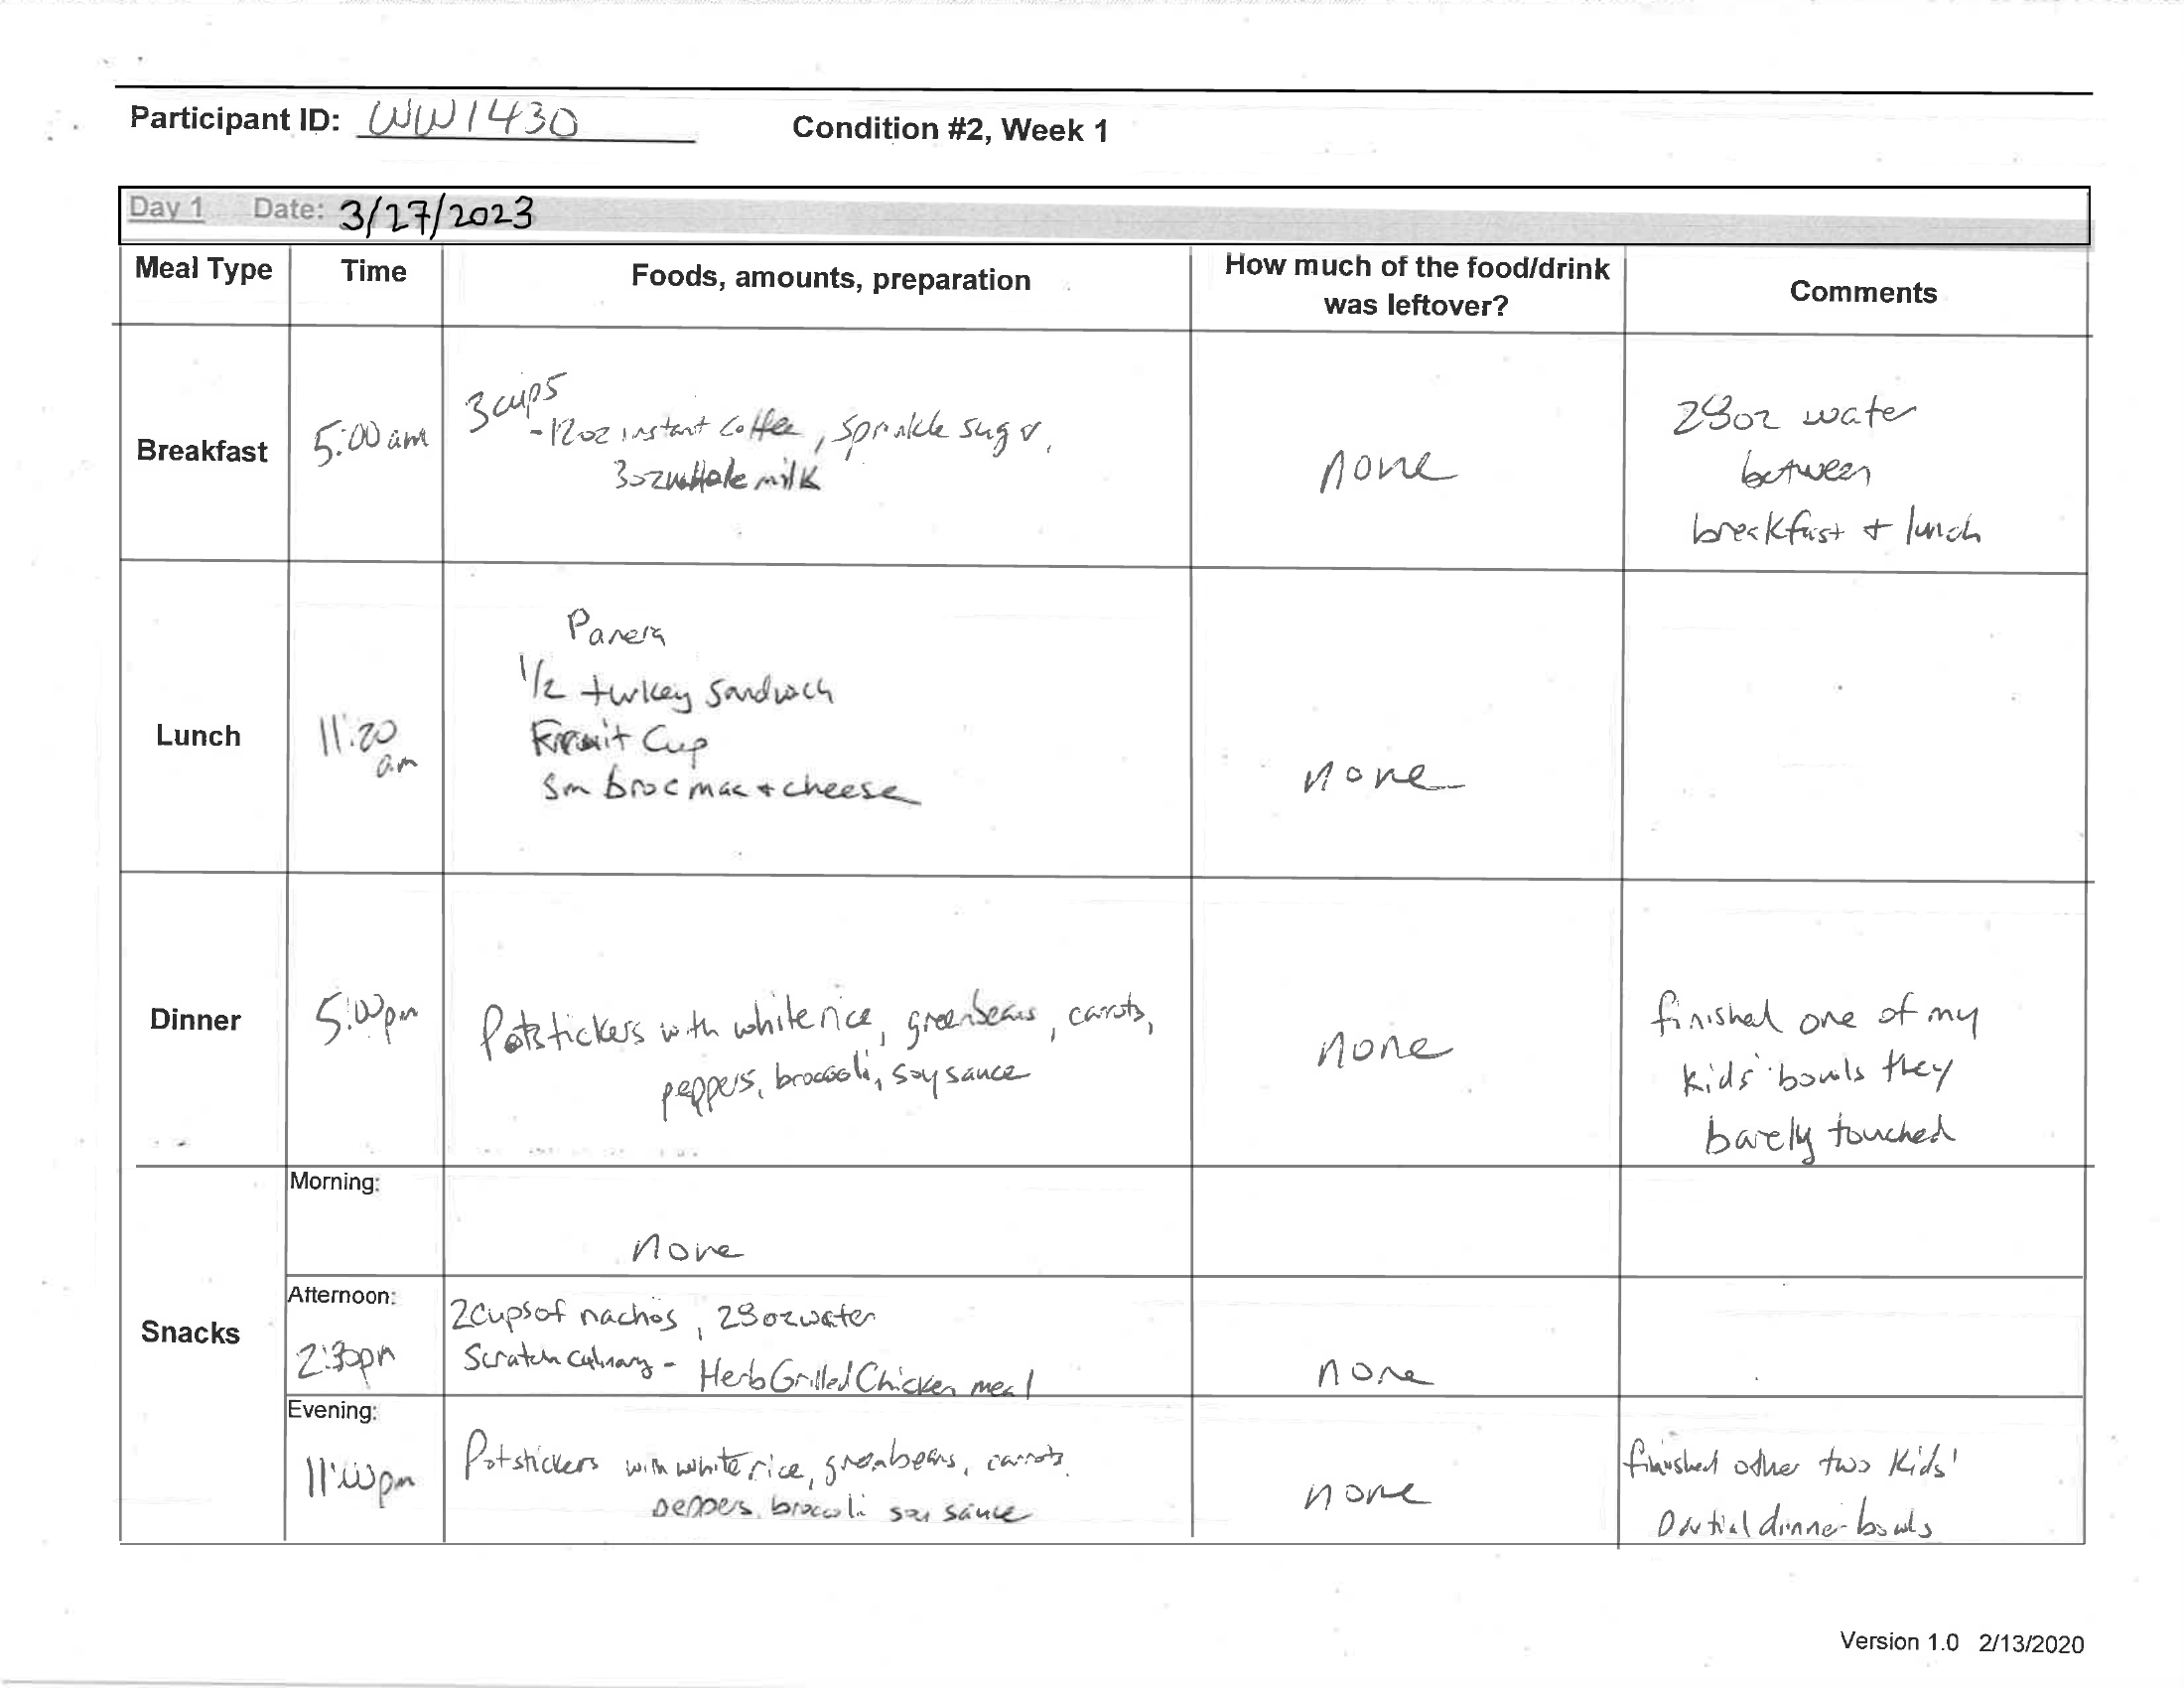 Participant ID: WW1430
Condition #2, Week 1
Day 1 Date: 3/27/2023
Meal Type
Time
Foods, amounts, preparation
How much of the food/drink
was leftover?
Comments
Breakfast
5:00 am
3 cups
- 12oz instant coffee, sprinkle sugr,
3oz whole milk
none
28oz water
between
breakfast + lunch
Lunch
11:20
am
Panera
1/2 turkey sandwich
Fruit Cup
sm broc mac + cheese
none
Dinner
5:00pm
Potstickers with white rice, greenbeans, carrots,
peppers, broccoli, soy sauce
none
finished one of my
kids' bowls they
barely touched
Snacks
Morning:
none
Afternoon:
2:30pm
2 cups of nachos, 28oz water
Scratch Culinary - Herb Grilled Chicken meal
none
Evening:
11:00pm
Potstickers with white rice, greenbeans, carrots,
peppers, broccoli soy sauce
none
finished other two kids'
partial dinner bowls
Version 1.0 2/13/2020